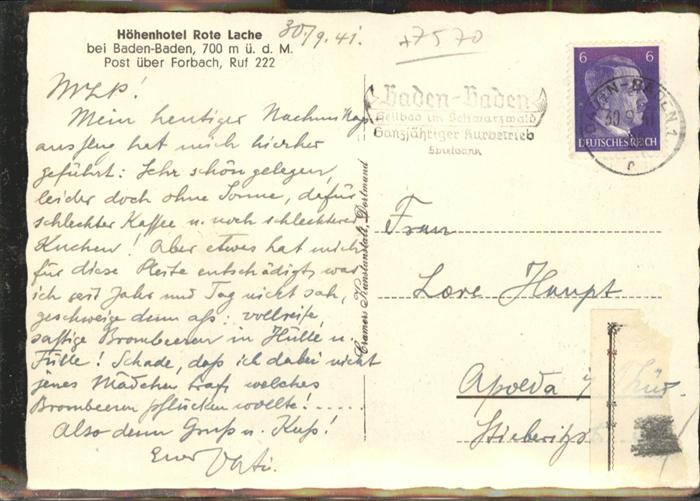 Höhenhotel Rote Lache
bei Baden-Baden, 700 m ü. d. M.
Post über Forbach, Ruf 222
30./9. 41.
+7570
M.L.P.!
Mein heutiger Nachmittags
ausflug hat mich hierher
geführt: Sehr schön gelegen,
leider doch ohne Sonne, dafür
schlechter Kaffee u. noch schlechterer
Kuchen! Aber etwas hat mich
für diese Pleite entschädigt, was
ich seit Jahr und Tag nicht sah,
geschweige denn aß: vollreife,
saftige Brombeeren in Hülle u.
Fülle! Schade, daß ich dabei nicht
jenes Mädchen traf, welches
Brombeeren pflücken wollte! .....
Also denn Gruß u. Kuß!
Euer Vati.
Cramers Kunstanstalt, Dortmund
Baden-Baden
Heilbad im Schwarzwald
Ganzjähriger Kurbetrieb
Spielbank
6 6
DEUTSCHES REICH
BADEN-BADEN 1
30.9.41
r
Frau
Lore Haupt
Apolda i/ Thür.